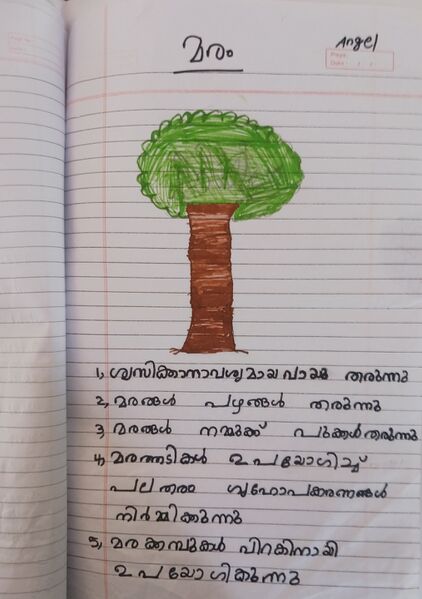 മരം
Angel
Page:
Date: / /
1, ശ്വസിക്കാനാവശ്യമായ വായു തരുന്നു
2, മരങ്ങൾ പഴങ്ങൾ തരുന്നു
3, മരങ്ങൾ നമ്മുക്ക് പൂക്കൾ തരുന്നു
4, മരത്തടികൾ ഉപയോഗിച്ച്
പലതരം ഗൃഹോപകരണങ്ങൾ
നിർമ്മിക്കുന്നു
5, മരക്കമ്പുകൾ വിറകിനായി
ഉപയോഗിക്കുന്നു